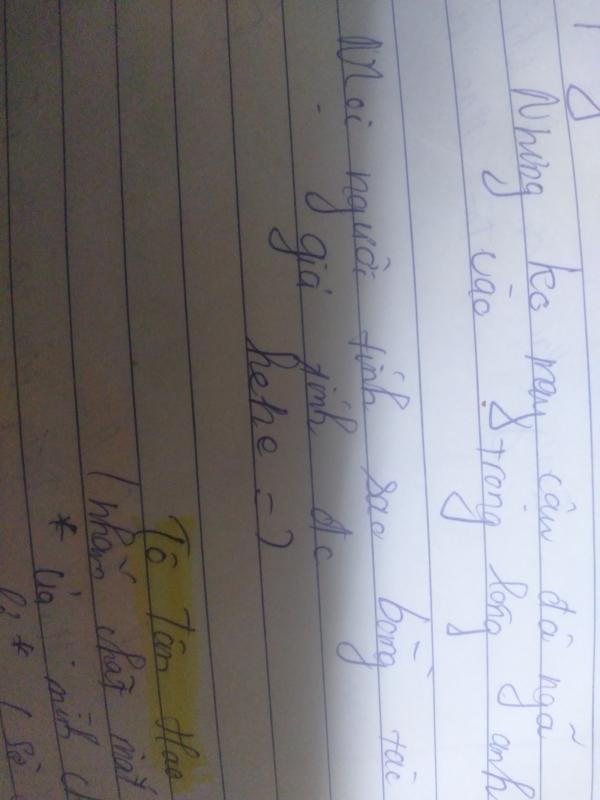 Nhưng ko may cậu đã ngã
vào trong lòng anh
Mọi người tính sao bằng tác
giả tính đc
hehe =)
Tô Tân Hao
(nhắm chặt mắt
* Và mình